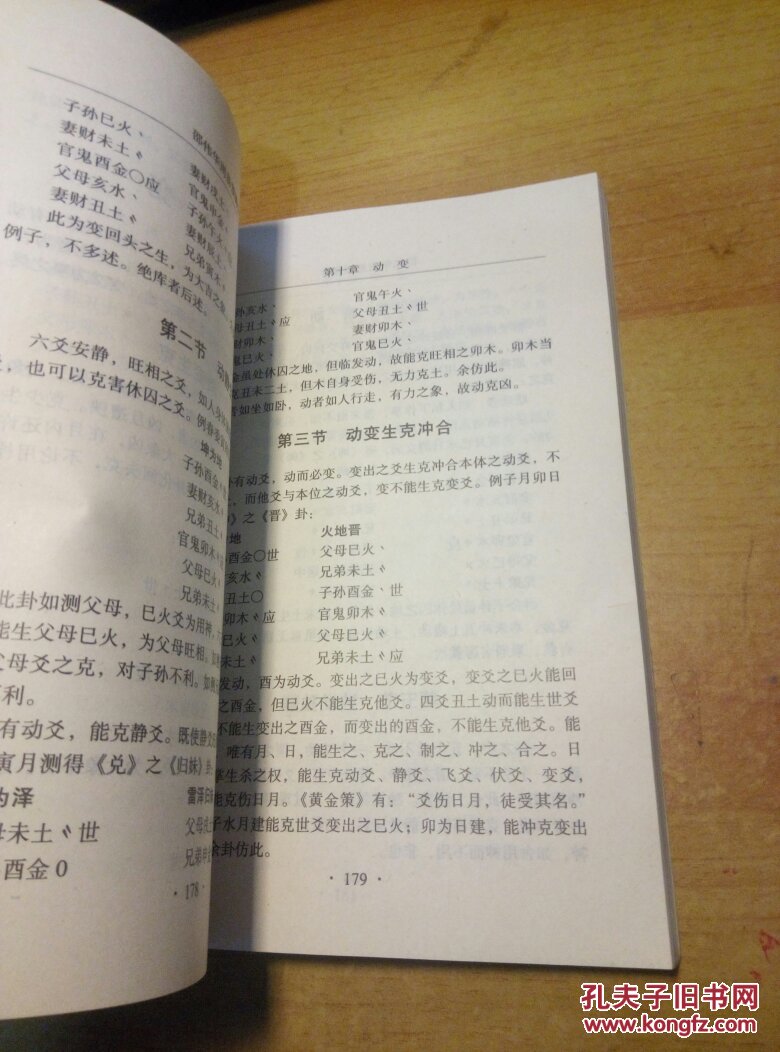 子孙巳火、
妻财未土〃
官鬼酉金〇应
父母亥水、
妻财丑土〃
妻财戌土
官鬼申金
子孙午火
妻财辰土
兄弟寅木
此为变回头之生，为大吉之
例子，不多述。绝库者后述。
第二节 动
六爻安静，旺相之爻，如人
，也可以克害休囚之爻。例春
坤为地
子孙酉金〃
妻财亥水〃
兄弟丑土〃
官鬼卯木〃
父母巳火〃
兄弟未土〃
此卦如测父母，巳火爻为用神，
能生父母巳火，为父母旺相。
父母爻之克，对子孙不利。如
利。
有动爻，能克静爻。既使静爻
寅月测得《兑》之《归妹》卦
为泽
雷泽归妹
母未土〃世
父母戌土
酉金0
兄弟申金
· 178 ·
第十章 动 变
孙亥水、
官鬼午火、
母丑土〃应
父母丑土〃世
财卯木、
妻财卯木、
鬼巳火、
官鬼巳火、
金虽处休囚之地，但临发动，故能克旺相之卯木。卯木当
克丑未二土，但木自身受伤，无力克土。余仿此。
者如坐如卧，动者如人行走，有力之象，故动克凶。
第三节 动变生克冲合
卦有动爻，动而必变。变出之爻生克冲合本体之动爻，不
之，而他爻与本位之动爻，变不能生克变爻。例子月卯日
》之《晋》卦：
地
火地晋
酉金〇世
父母巳火、
亥水〃
兄弟未土〃
丑土〇
子孙酉金、世
卯木〃应
官鬼卯木〃
巳火〃
父母巳火〃
未土〃
兄弟未土〃应
发动，酉为动爻。变出之巳火为变爻，变爻之巳火能回
之酉金，但巳火不能生克他爻。四爻丑土动而能生世爻
不能生变出之酉金，而变出的酉金，不能生克他爻。能
唯有月、日，能生之、克之、制之、冲之、合之。日
掌生杀之权，能生克动爻、静爻、飞爻、伏爻、变爻，
能克伤日月。《黄金策》有：“爻伤日月，徒受其名。”
子水月建能克世爻变出之巳火；卯为日建，能冲克变出
余卦仿此。
· 179 ·
孔夫子旧书网
WWW.KONGFZ.COM